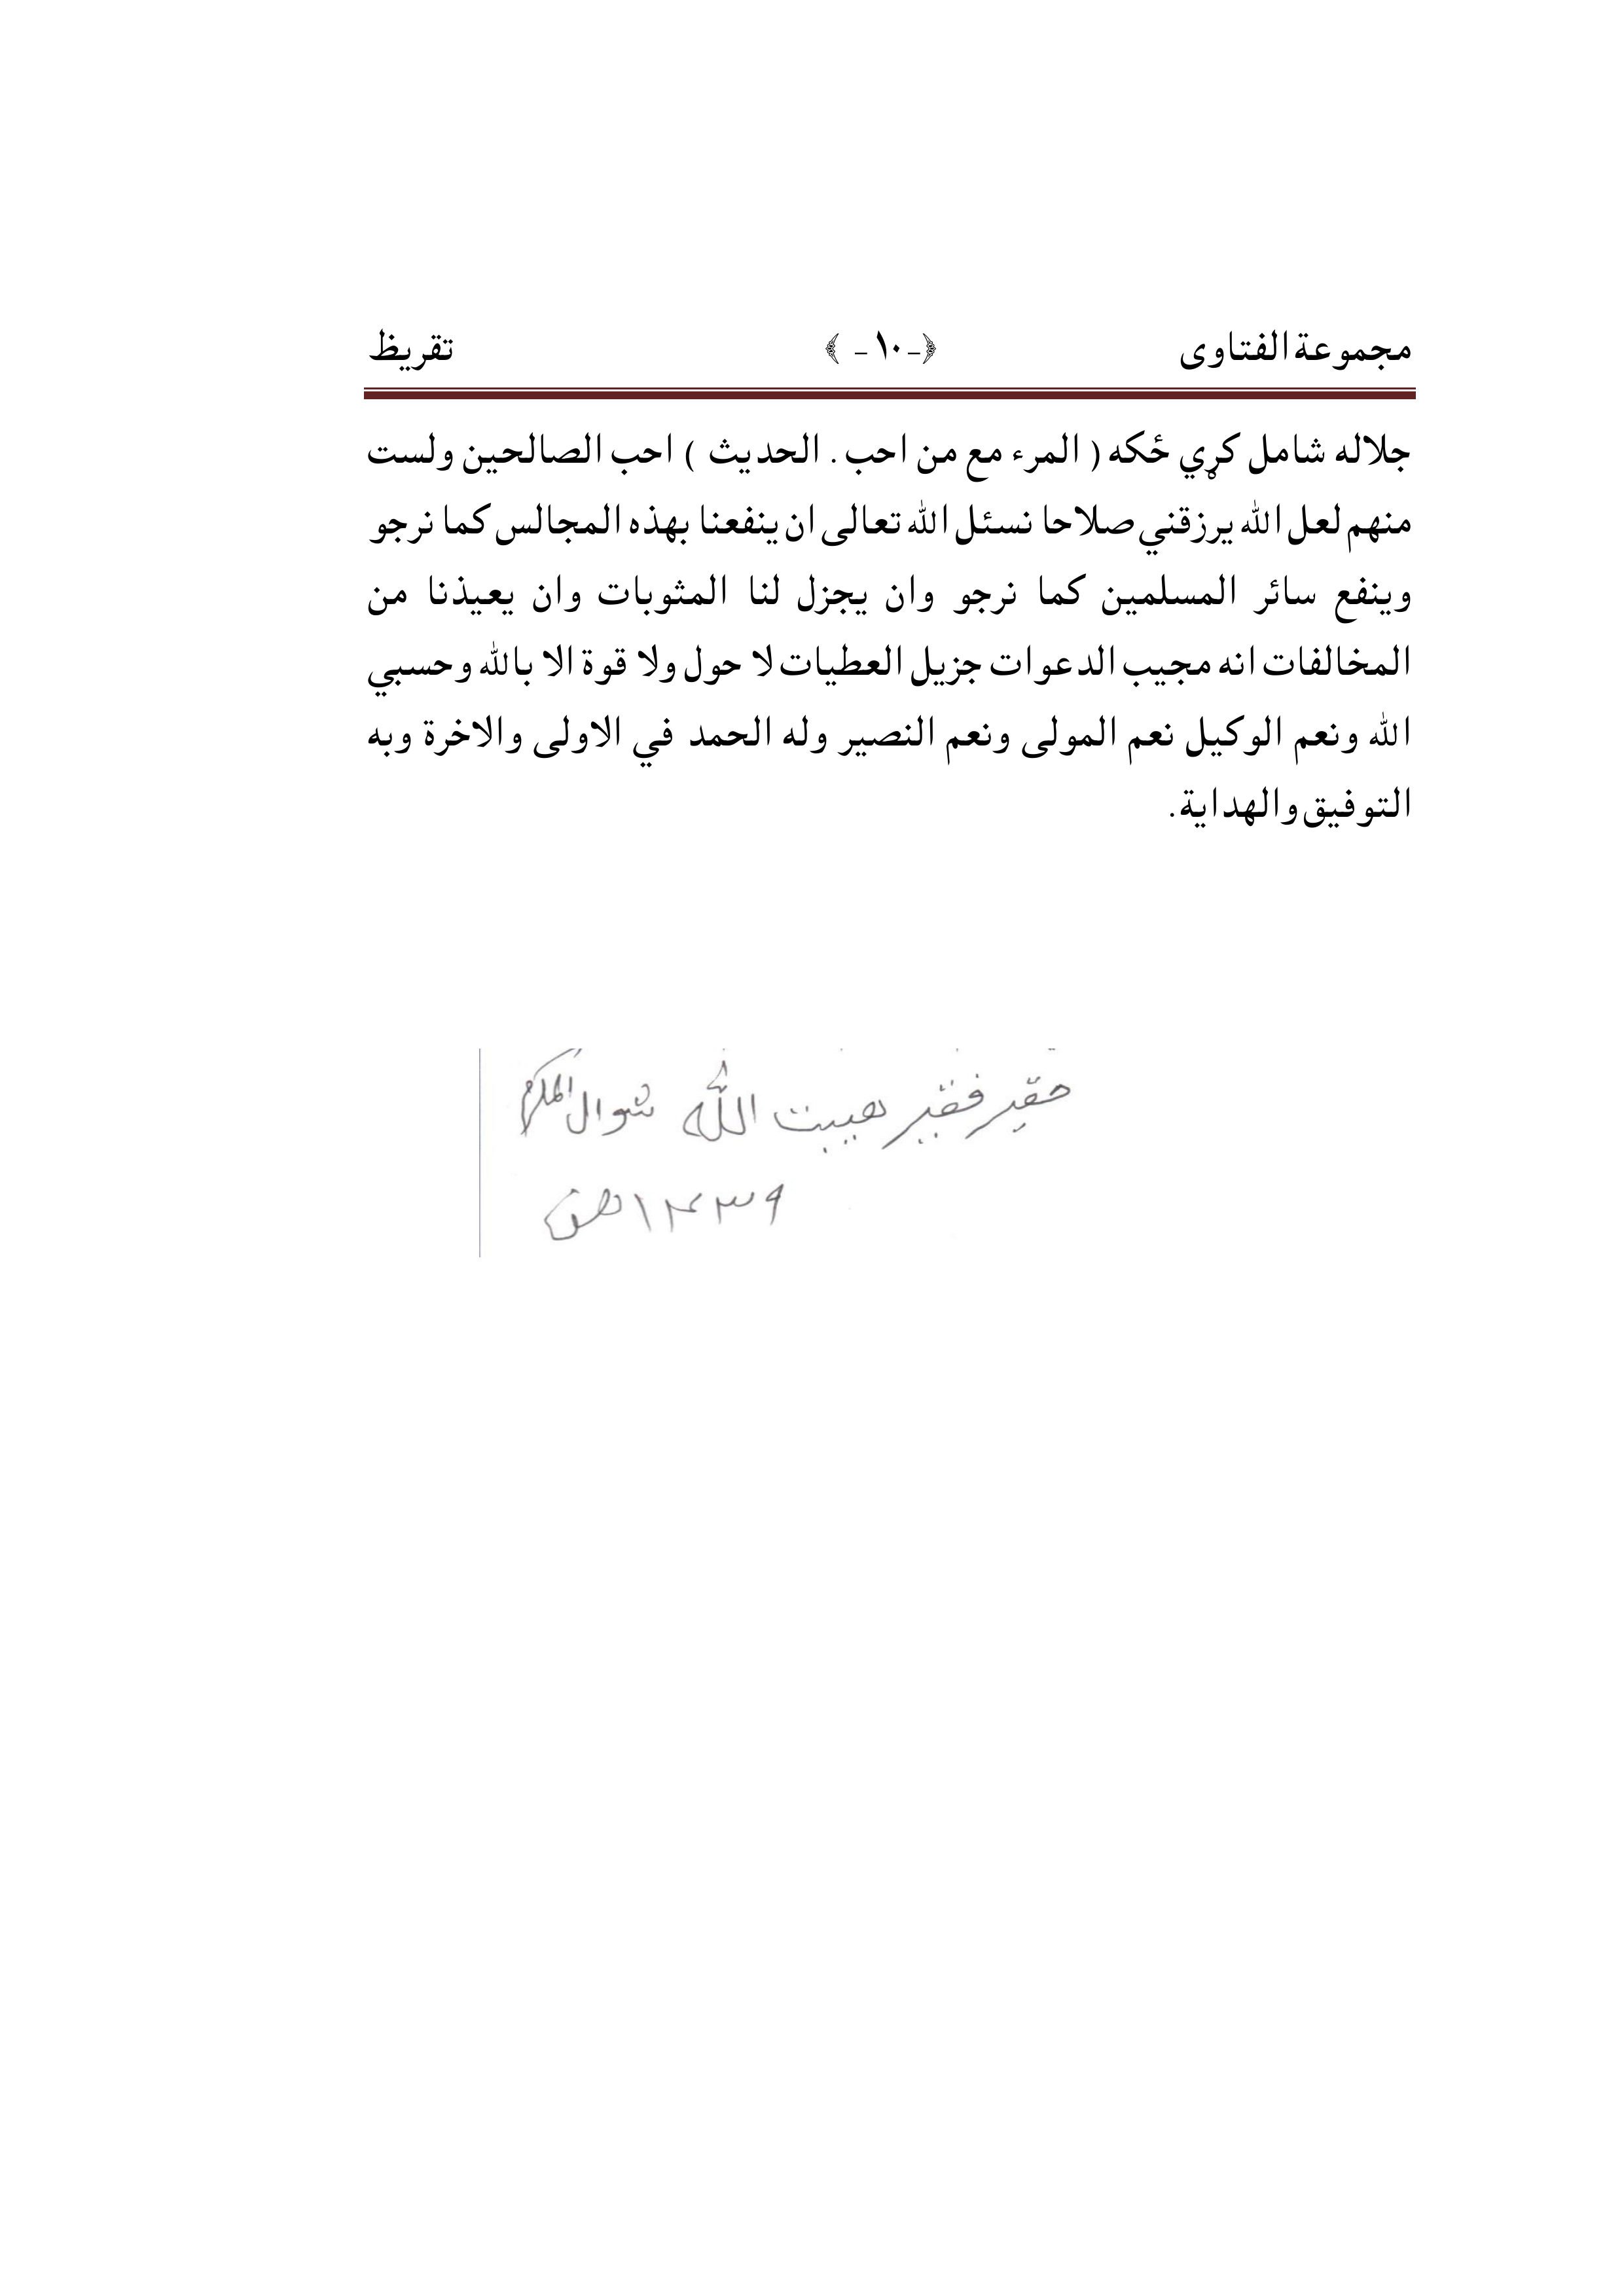 مجموعة الفتاوى ﴿-١٠- ﴾ تقريظ
جلاله شامل کړي ځکه ( المرء مع من احب . الحديث ) احب الصالحين ولست
منهم لعل الله يرزقني صلاحا نسئل الله تعالى ان ينفعنا بهذه المجالس كما نرجو
وينفع سائر المسلمين كما نرجو وان يجزل لنا المثوبات وان يعيذنا من
المخالفات انه مجيب الدعوات جزيل العطيات لا حول ولا قوة الا بالله وحسبي
الله ونعم الوكيل نعم المولى ونعم النصير وله الحمد في الاولى والاخرة وبه
التوفيق والهداية.
حقير فقير هيبت الله شوال المكرم
۱۴۳۹ هـ ق